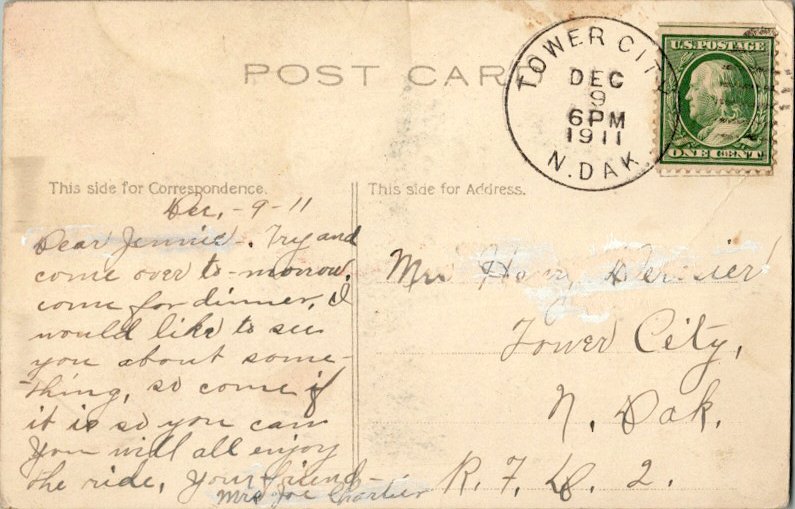 POST CARD
TOWER CITY
DEC
9
6PM
1911
N. DAK.
U.S. POSTAGE
ONE CENT
This side for Correspondence.
This side for Address.
Dec. - 9 - 11
Dear Jennie -. Try and
come over to-morrow,
come for dinner, I
would like to see
you about some-
thing, so come if
it is so you can
You will all enjoy
the ride, Your friend -
Mrs Joe Chartier
Mrs
Tower City,
N. Dak.
R. F. D. 2.